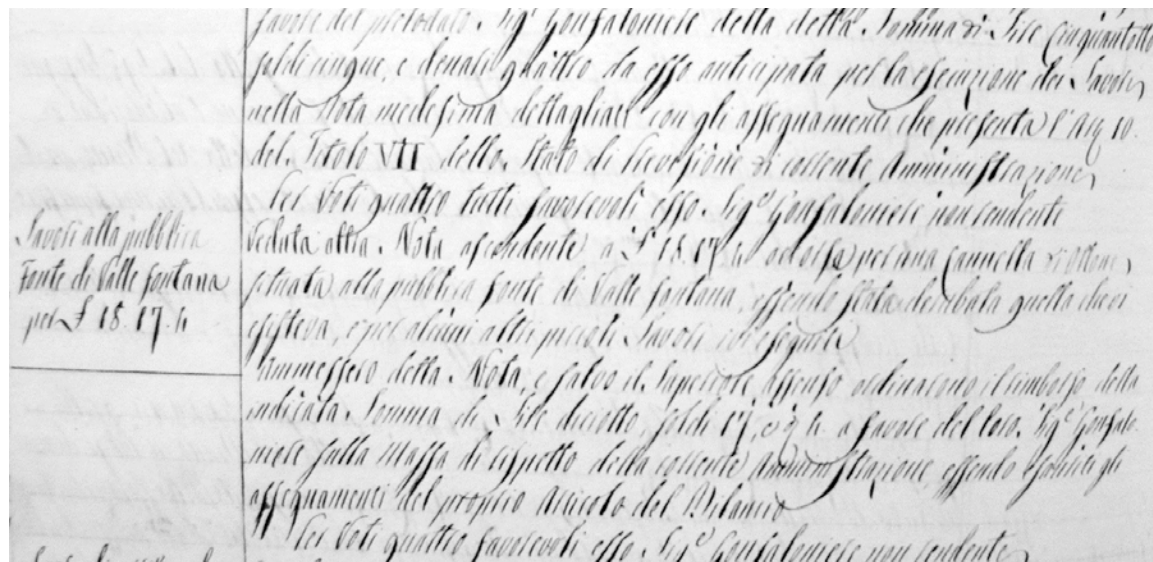 favore del prelodato Sig.e Gonfaloniere della detta Somma di Lire Cinquantotto
soldi cinque, e denari quattro da esso anticipata per la esecuzione dei Lavori
nella Nota medesima dettagliati con gli assegnamenti che presenta l'Art. 10
del Titolo VII dello Stato di Previsione di corrente Amministrazione
Per Voti quattro tutti favorevoli esso Sig.e Gonfaloniere non rendente
Lavori alla pubblica
Fonte di Valle fontana
per £ 18.17.4
Veduta altra Nota ascendente a £ 18.17.4 occorsa per una Cannella di Ottone
situata alla pubblica fonte di Valle fontana, essendo stata derubata quella che vi
esisteva, e per alcuni altri piccoli Lavori ivi eseguiti
Ammessero detta Nota, e salvo il Superiore assenso ordinarono il rimborso della
indicata Somma di Lire diciotto, soldi 17, e 4 a favore del loro Sig.e Gonfalo
niere sulla Massa di rispetto della corrente Amministrazione essendo esauriti gli
assegnamenti del proprio Articolo del Bilancio
Per Voti quattro favorevoli esso Sig.e Gonfaloniere non rendente